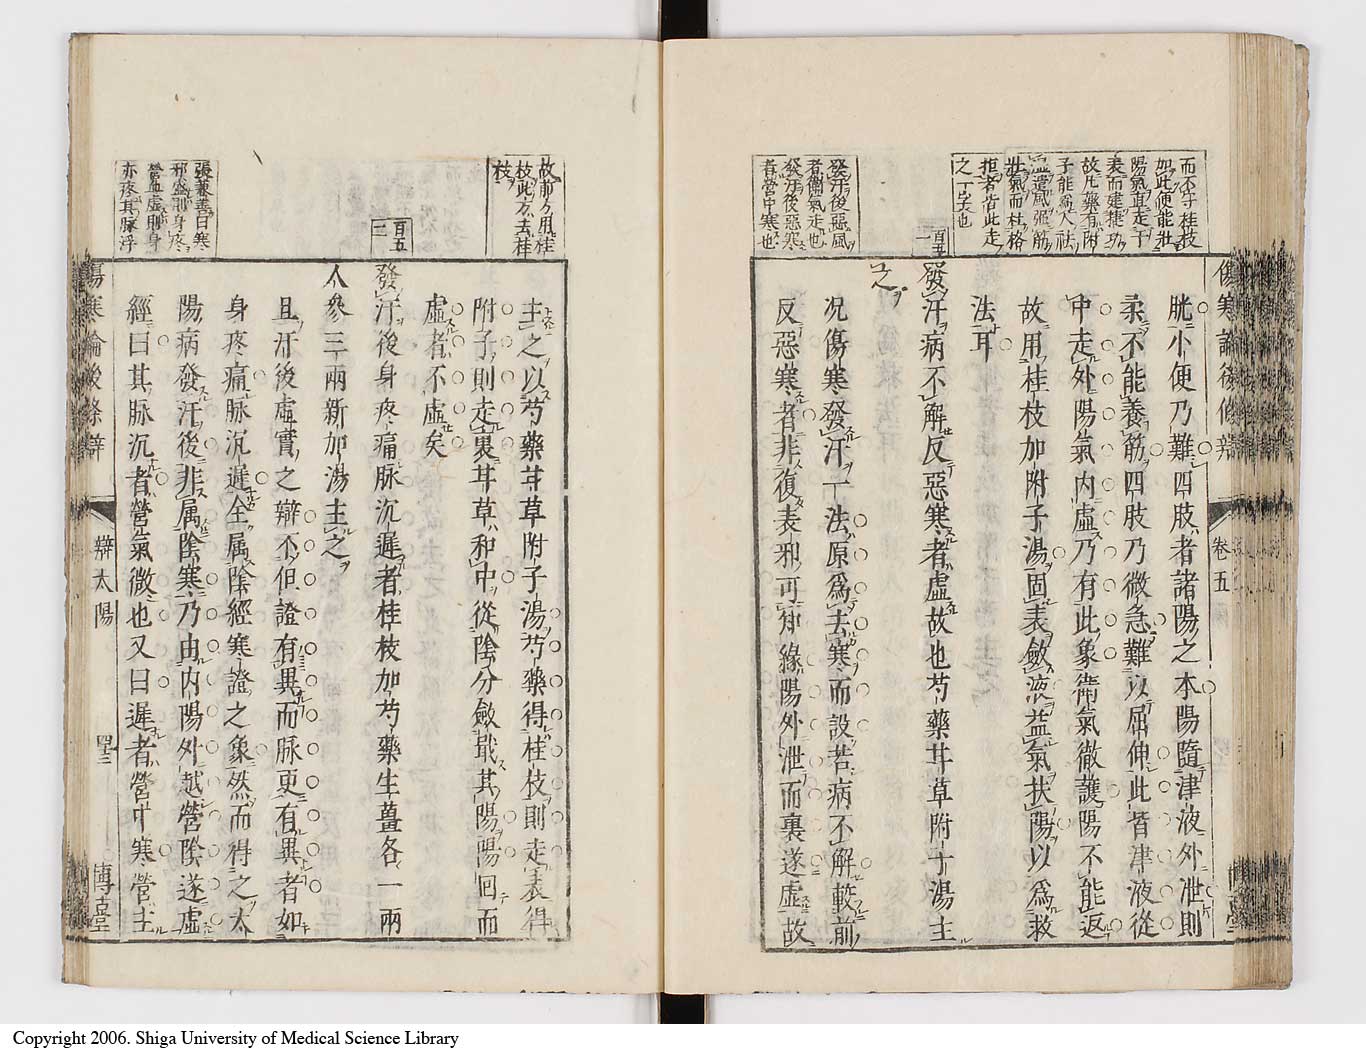 而不守桂枝
如此使能壯
陽氣直走于
表而建捷功
故凡藥有附
子能爲人祛
温遣風強筋
壯氣而杜格
拒者皆此走
之一字也
傷寒論後條辨
卷五
胱小便乃難四肢者諸陽之本陽隨津液外泄則
柔不能養筋四肢乃微急難以屈伸此皆津液從
中走外陽氣内虛乃有此象衛氣徹護陽不能返
故用桂枝加附子湯固表斂液益氣扶陽以爲救
法耳
百五一
發汗病不解反惡寒者虛故也芍藥甘草附子湯主
之
發汗後惡風
者衞氣走也
發汗後惡寒
者營中寒也
况傷寒發汗一法原爲去寒而設若病不解較前
反惡寒者非復表邪可知緣陽外泄而裏遂虛故
故前方用桂
枝此方去桂
枝
主之以芍藥甘草附子湯芍藥得桂枝則走表得
附子則走裏甘草和中從陰分斂戢其陽陽回而
虛者不虛矣
百五二
發汗後身疼痛脉沉遲者桂枝加芍藥生薑各一兩
人參三兩新加湯主之
且汗後虛實之辯不但證有異而脉更有異者如
身疼痛脉沉遲全属陰經寒證之象然而得之太
陽病發汗後非属陰寒乃由内陽外越營陰遂虛
經曰其脉沉者營氣微也又曰遲者營中寒營主
張兼善曰寒
邪盛則身疼
營血虛則身
亦疼其脉浮
傷寒論後條辨
辯太陽
博古堂